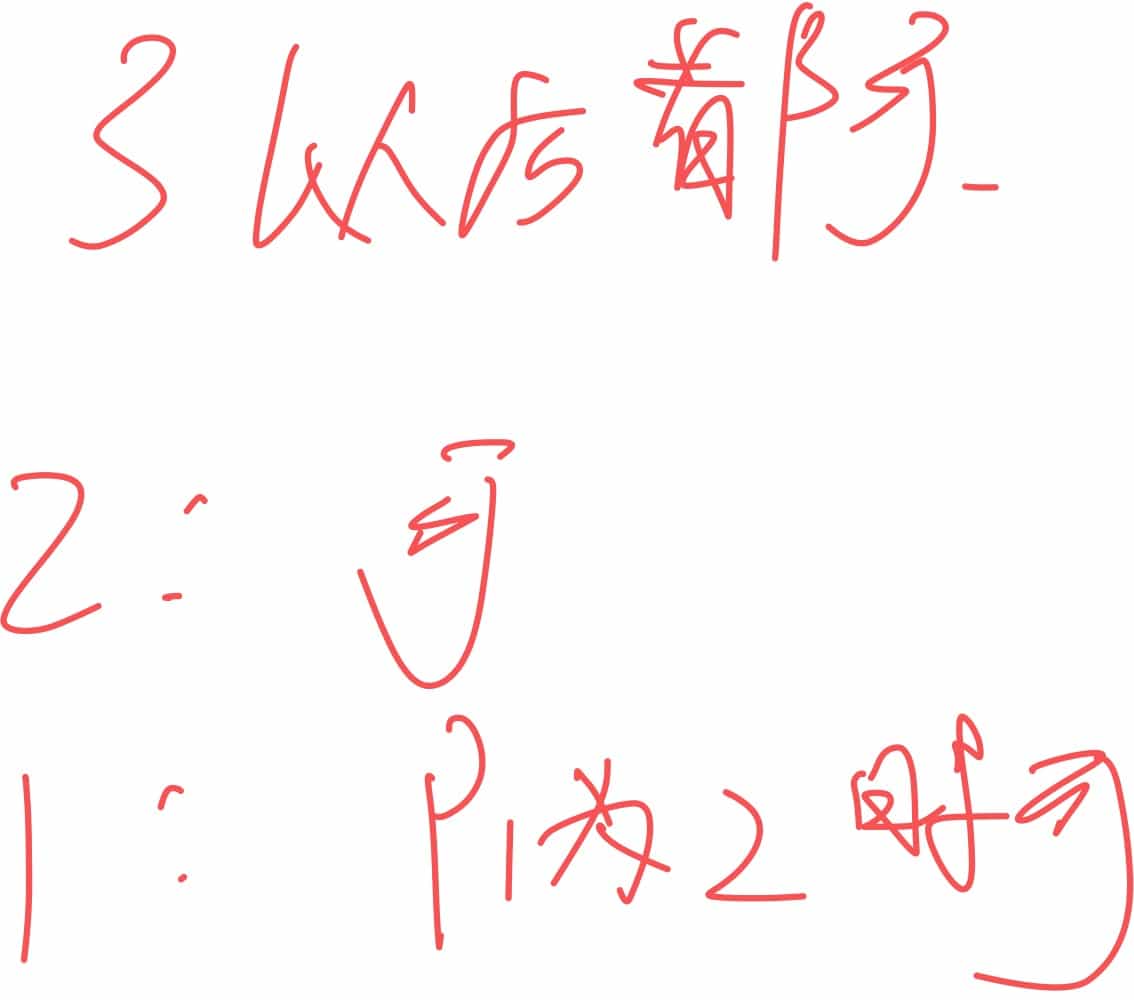 3以后都可
2: 可
1: P1为2时可